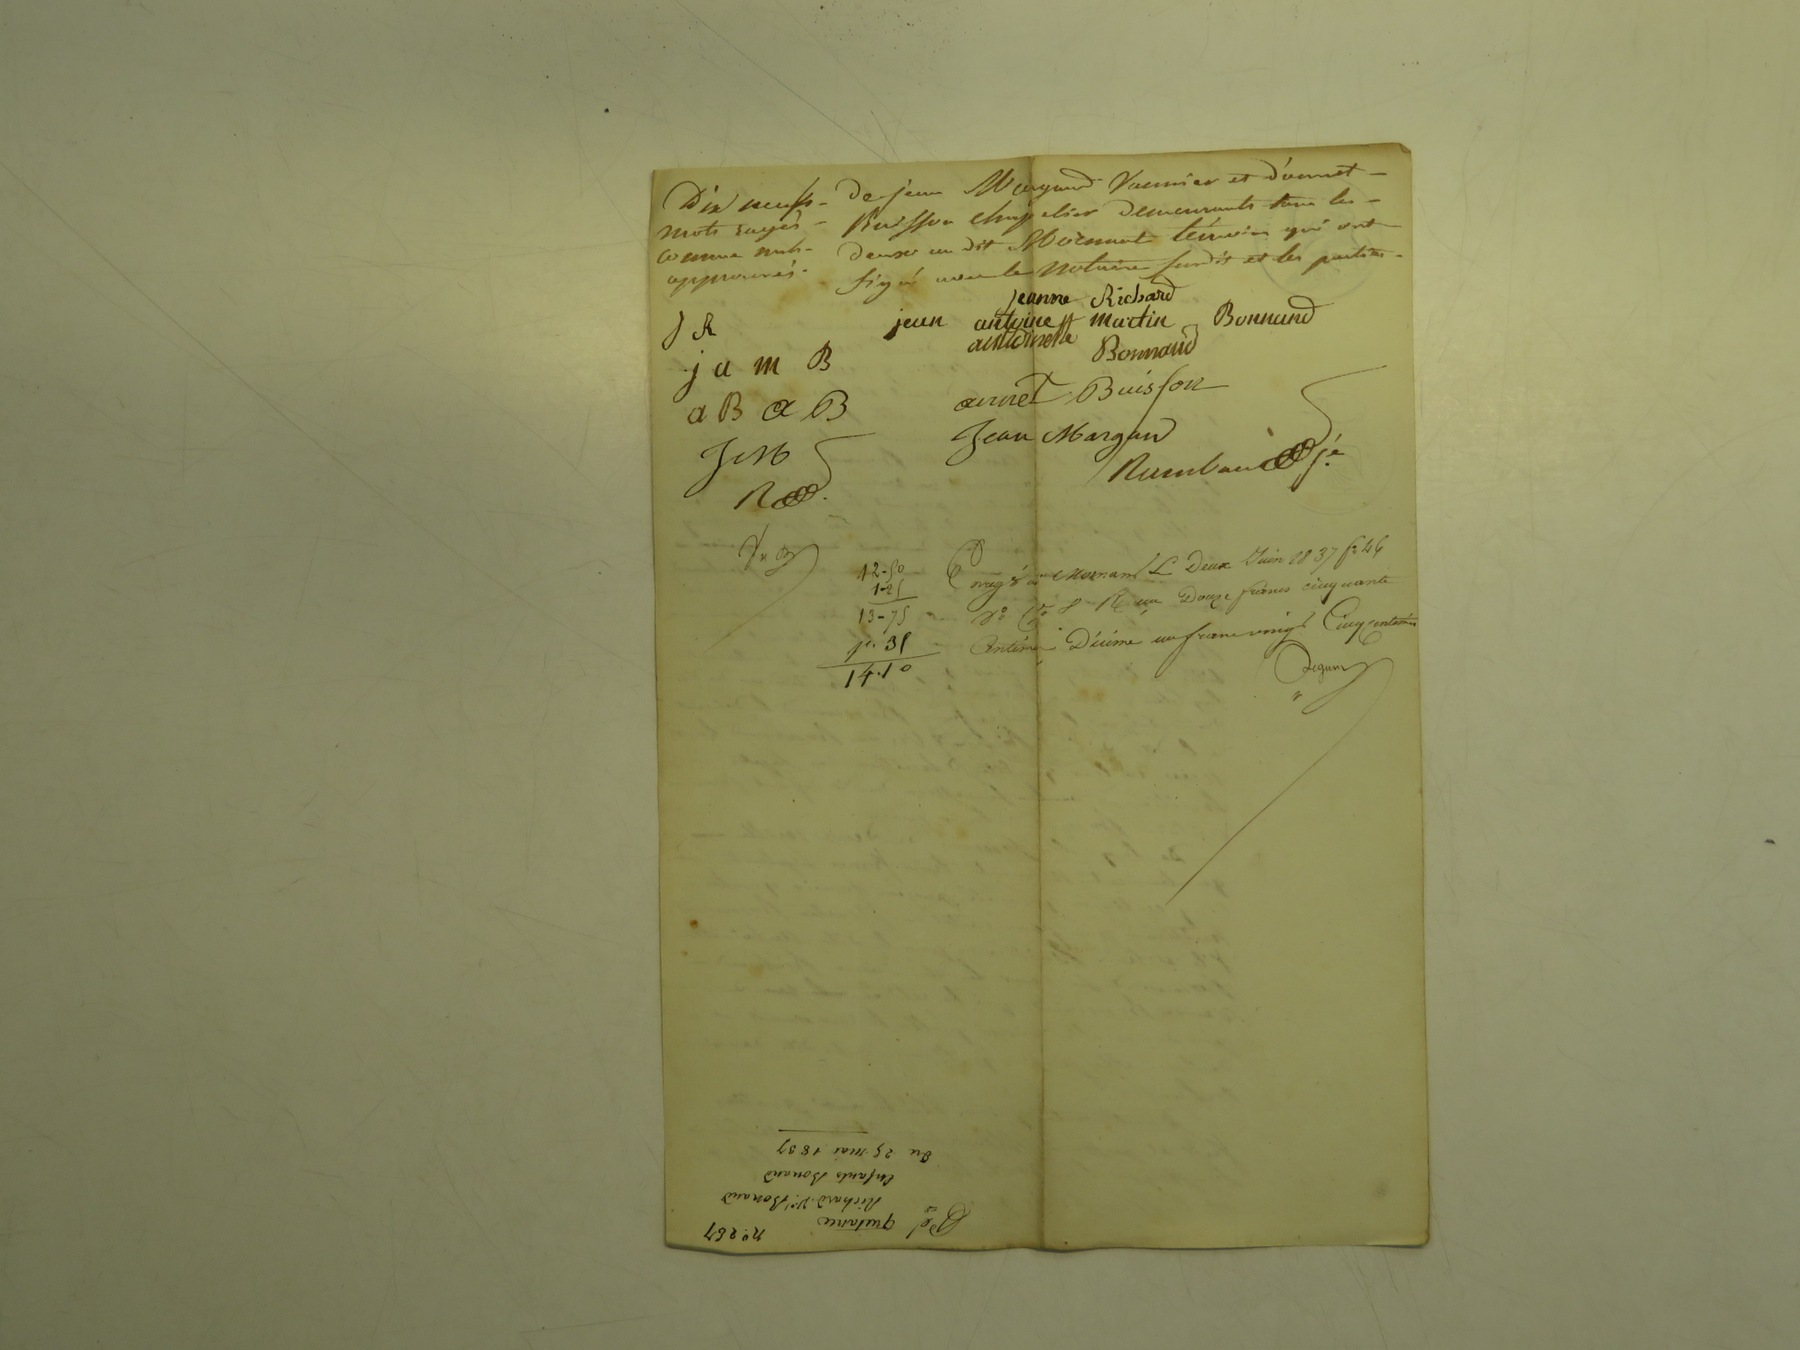 Dix neuf mots rayés comme nuls approuvés.
de jean Margand Vannier et d'annet
Buisson chapelier demeurants tous les
deux au dit Mornant témoins qui ont
signé avec le Notaire susdit et les parties.
jeanne Richard
J R jean antoine martin Bonnand
antoinette Bonnand
j a m B
a B a B annet Buisson
J M Jean Margand
R Rambaud je
12-50
1-25
13-75
35
14.10
Enregé à Mornant Le Deux Juin 1837 fo 46
Vo Ce R un Douze francs cinquante
Centimes Décime un franc vingt Cinq centimes
no 257
quitance
Richard Ve Bonand
enfants Bonand
Du 25 mai 1837